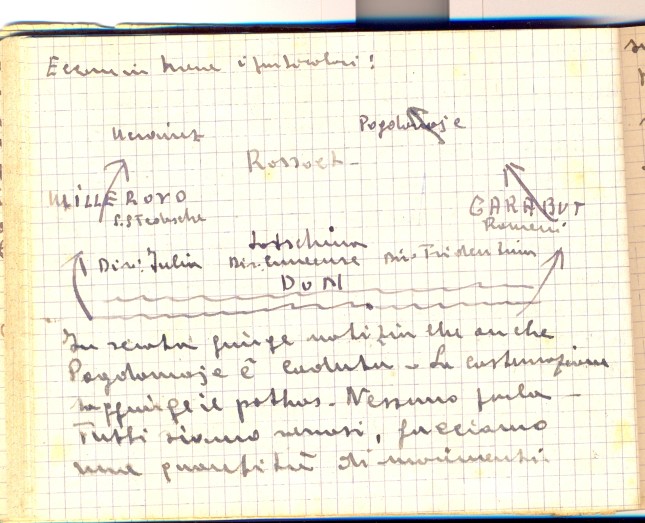 Eccone in breve i particolari!
Ucraina
Pogolomoje
Rossoch -
MILLEROVO
S.S Tedesche
CARABUT
Romeni
Div. Julia Div. Cuneense Div. Tridentina
DON
In serata giunge notizia che anche
Pogolomoje è caduta - La costernazione
raggiunge il pathos - Nessuno parla -
Tutti siamo nervosi, facciamo
una quantità di movimenti